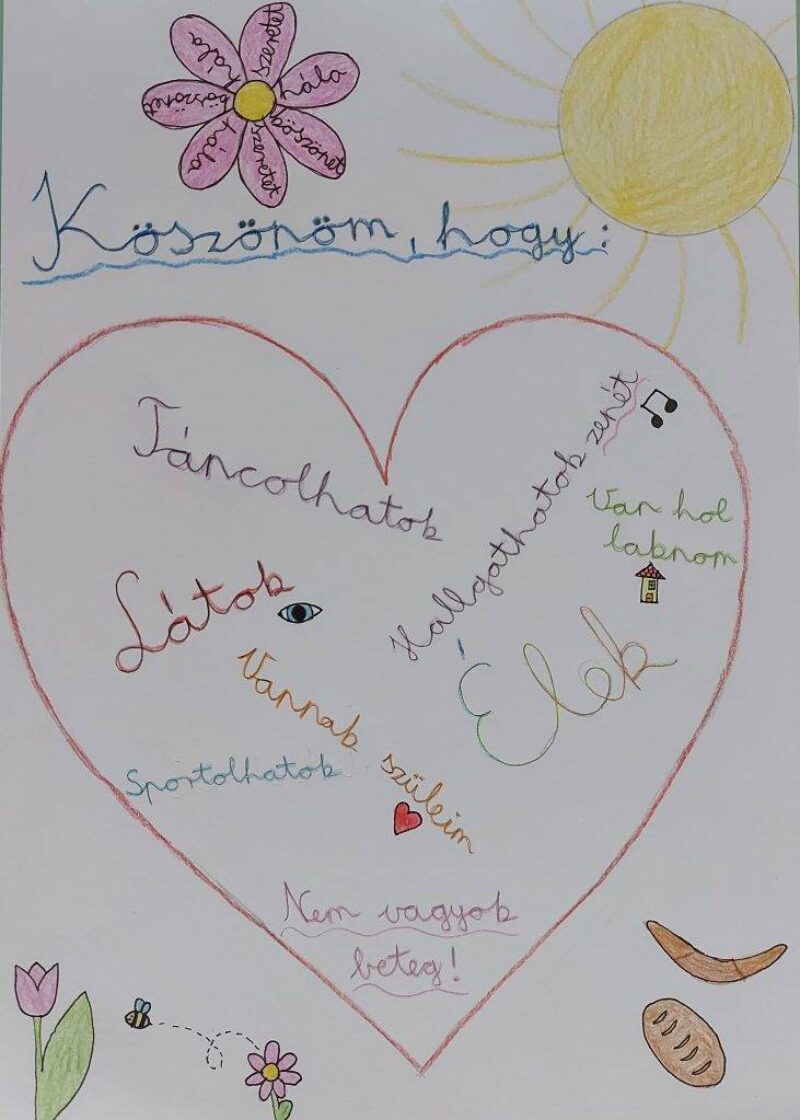 hála
hála
köszönet
szeretet
hála
köszönet
Köszönöm, hogy:
Táncolhatok
Hallgathatok zenét
Van hol
laknom
Látok
Élek
Vannak szüleim
Sportolhatok
Nem vagyok
beteg!